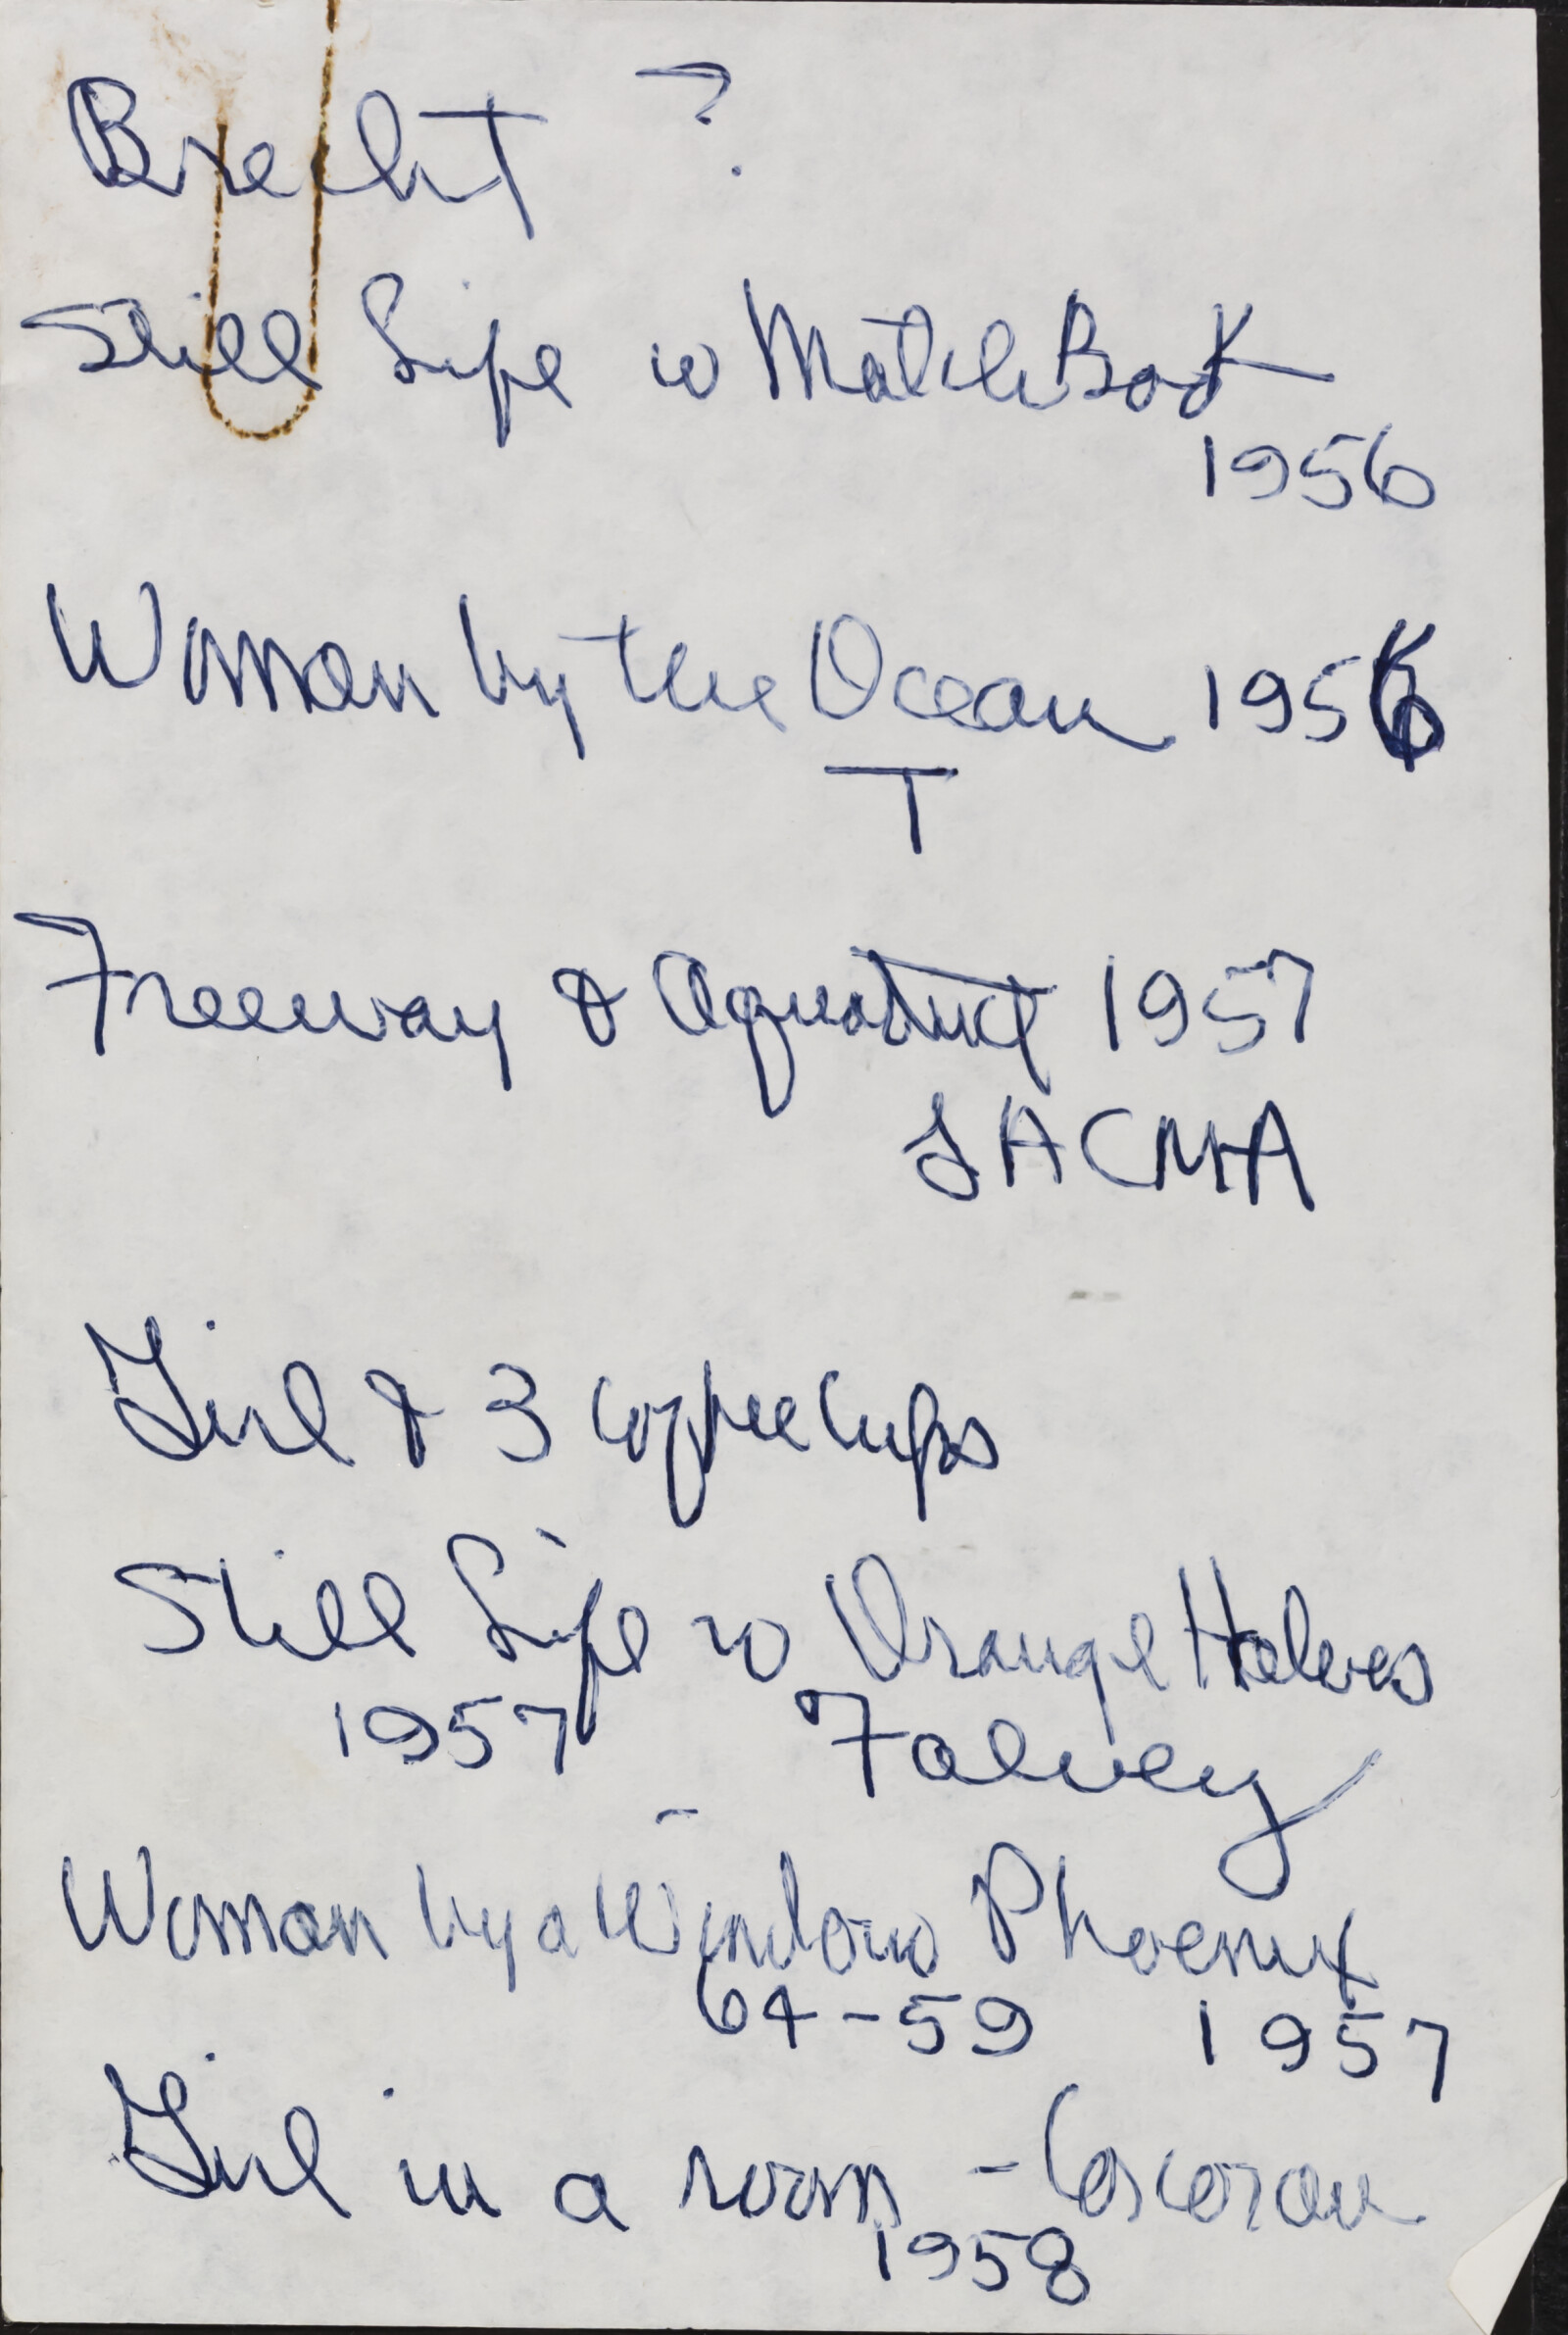 Brecht ?
Still Life w MatchBook
1956
Woman by the Ocean 1956
T
Freeway & Aquaduct 1957
LACMA
Girl & 3 coffee cups
Still Life w Orange Halves
1957 Falvey
Woman by a Window Phoenix
64-59 1957
Girl in a room - Corcoran
1958